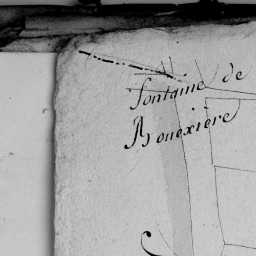 fontaine de
Bouexière